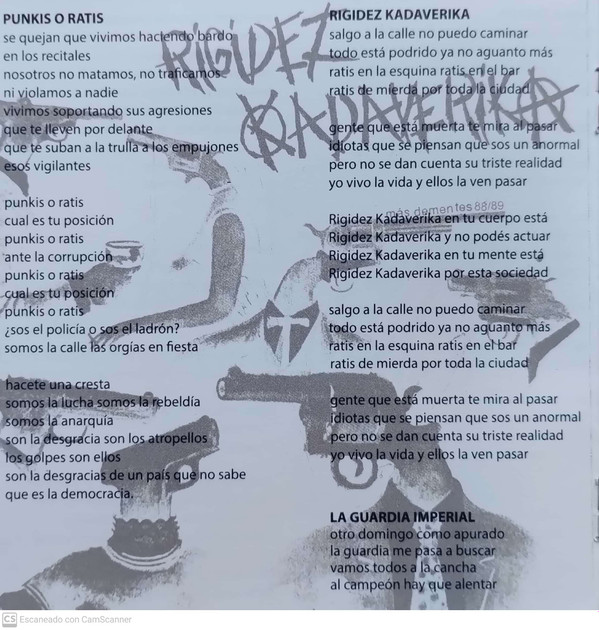 PUNKIS O RATIS
se quejan que vivimos haciendo bardo
en los recitales
nosotros no matamos, no traficamos
ni violamos a nadie
vivimos soportando sus agresiones
que te lleven por delante
que te suban a la trulla a los empujones
esos vigilantes
punkis o ratis
cual es tu posición
punkis o ratis
ante la corrupción
punkis o ratis
cual es tu posición
punkis o ratis
¿sos el policía o sos el ladrón?
somos la calle las orgías en fiesta
hacete una cresta
somos la lucha somos la rebeldía
somos la anarquía
son la desgracia son los atropellos
los golpes son ellos
son la desgracias de un país que no sabe
que es la democracia.
RIGIDEZ
KADAVERIKA
más dementes 88/89
RIGIDEZ KADAVERIKA
salgo a la calle no puedo caminar
todo está podrido ya no aguanto más
ratis en la esquina ratis en el bar
ratis de mierda por toda la ciudad
gente que está muerta te mira al pasar
idiotas que se piensan que sos un anormal
pero no se dan cuenta su triste realidad
yo vivo la vida y ellos la ven pasar
Rigidez Kadaverika en tu cuerpo está
Rigidez Kadaverika y no podés actuar
Rigidez Kadaverika en tu mente está
Rigidez Kadaverika por esta sociedad
salgo a la calle no puedo caminar
todo está podrido ya no aguanto más
ratis en la esquina ratis en el bar
ratis de mierda por toda la ciudad
gente que está muerta te mira al pasar
idiotas que se piensan que sos un anormal
pero no se dan cuenta su triste realidad
yo vivo la vida y ellos la ven pasar
LA GUARDIA IMPERIAL
otro domingo como apurado
la guardia me pasa a buscar
vamos todos a la cancha
al campeón hay que alentar
CS Escaneado con CamScanner